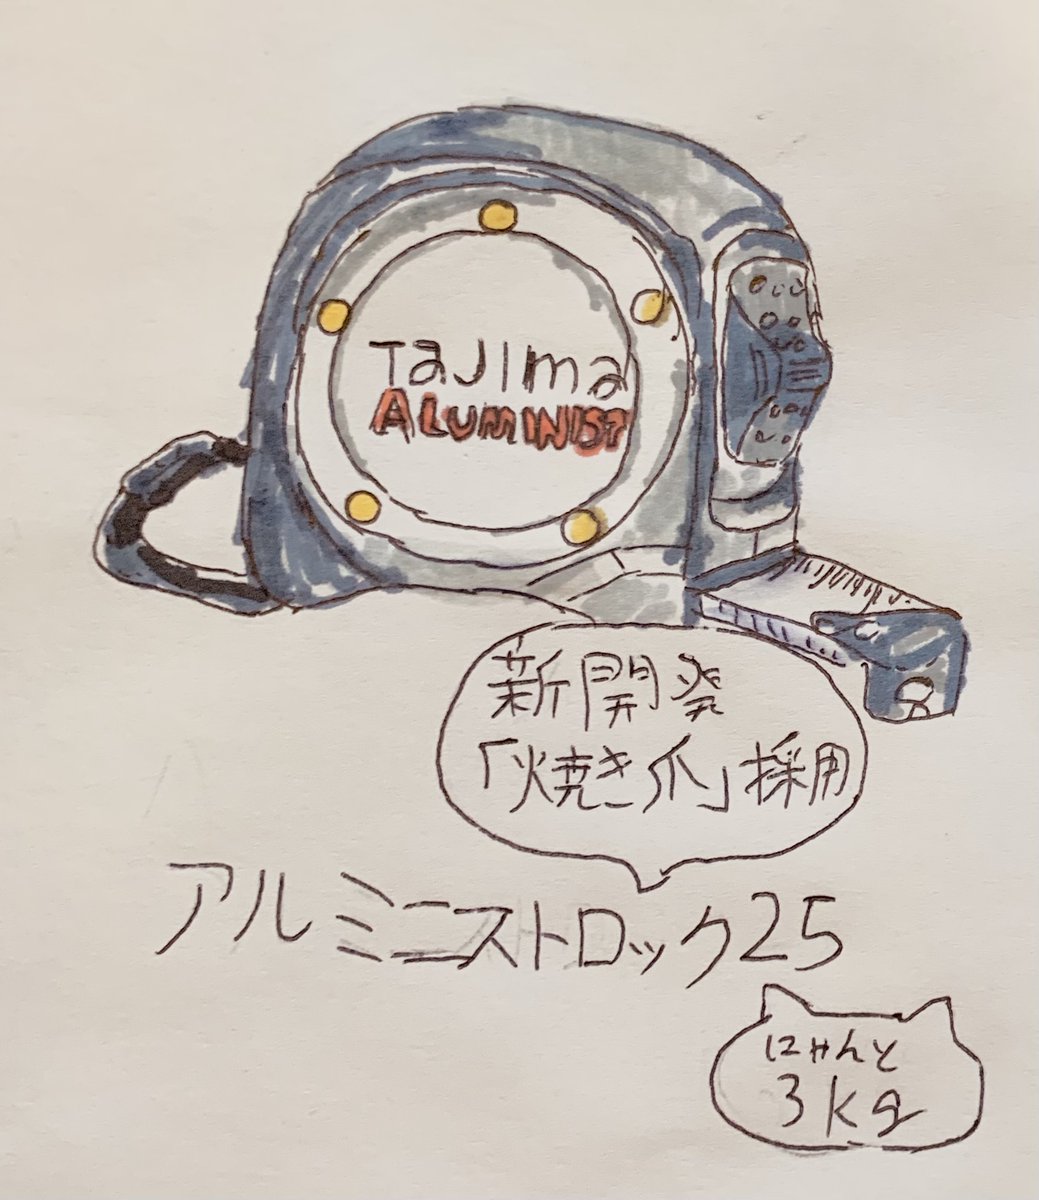 Tajima
ALUMINIST
新開発
「焼き爪」採用
アルミニストロック25
にゃんと
3kg